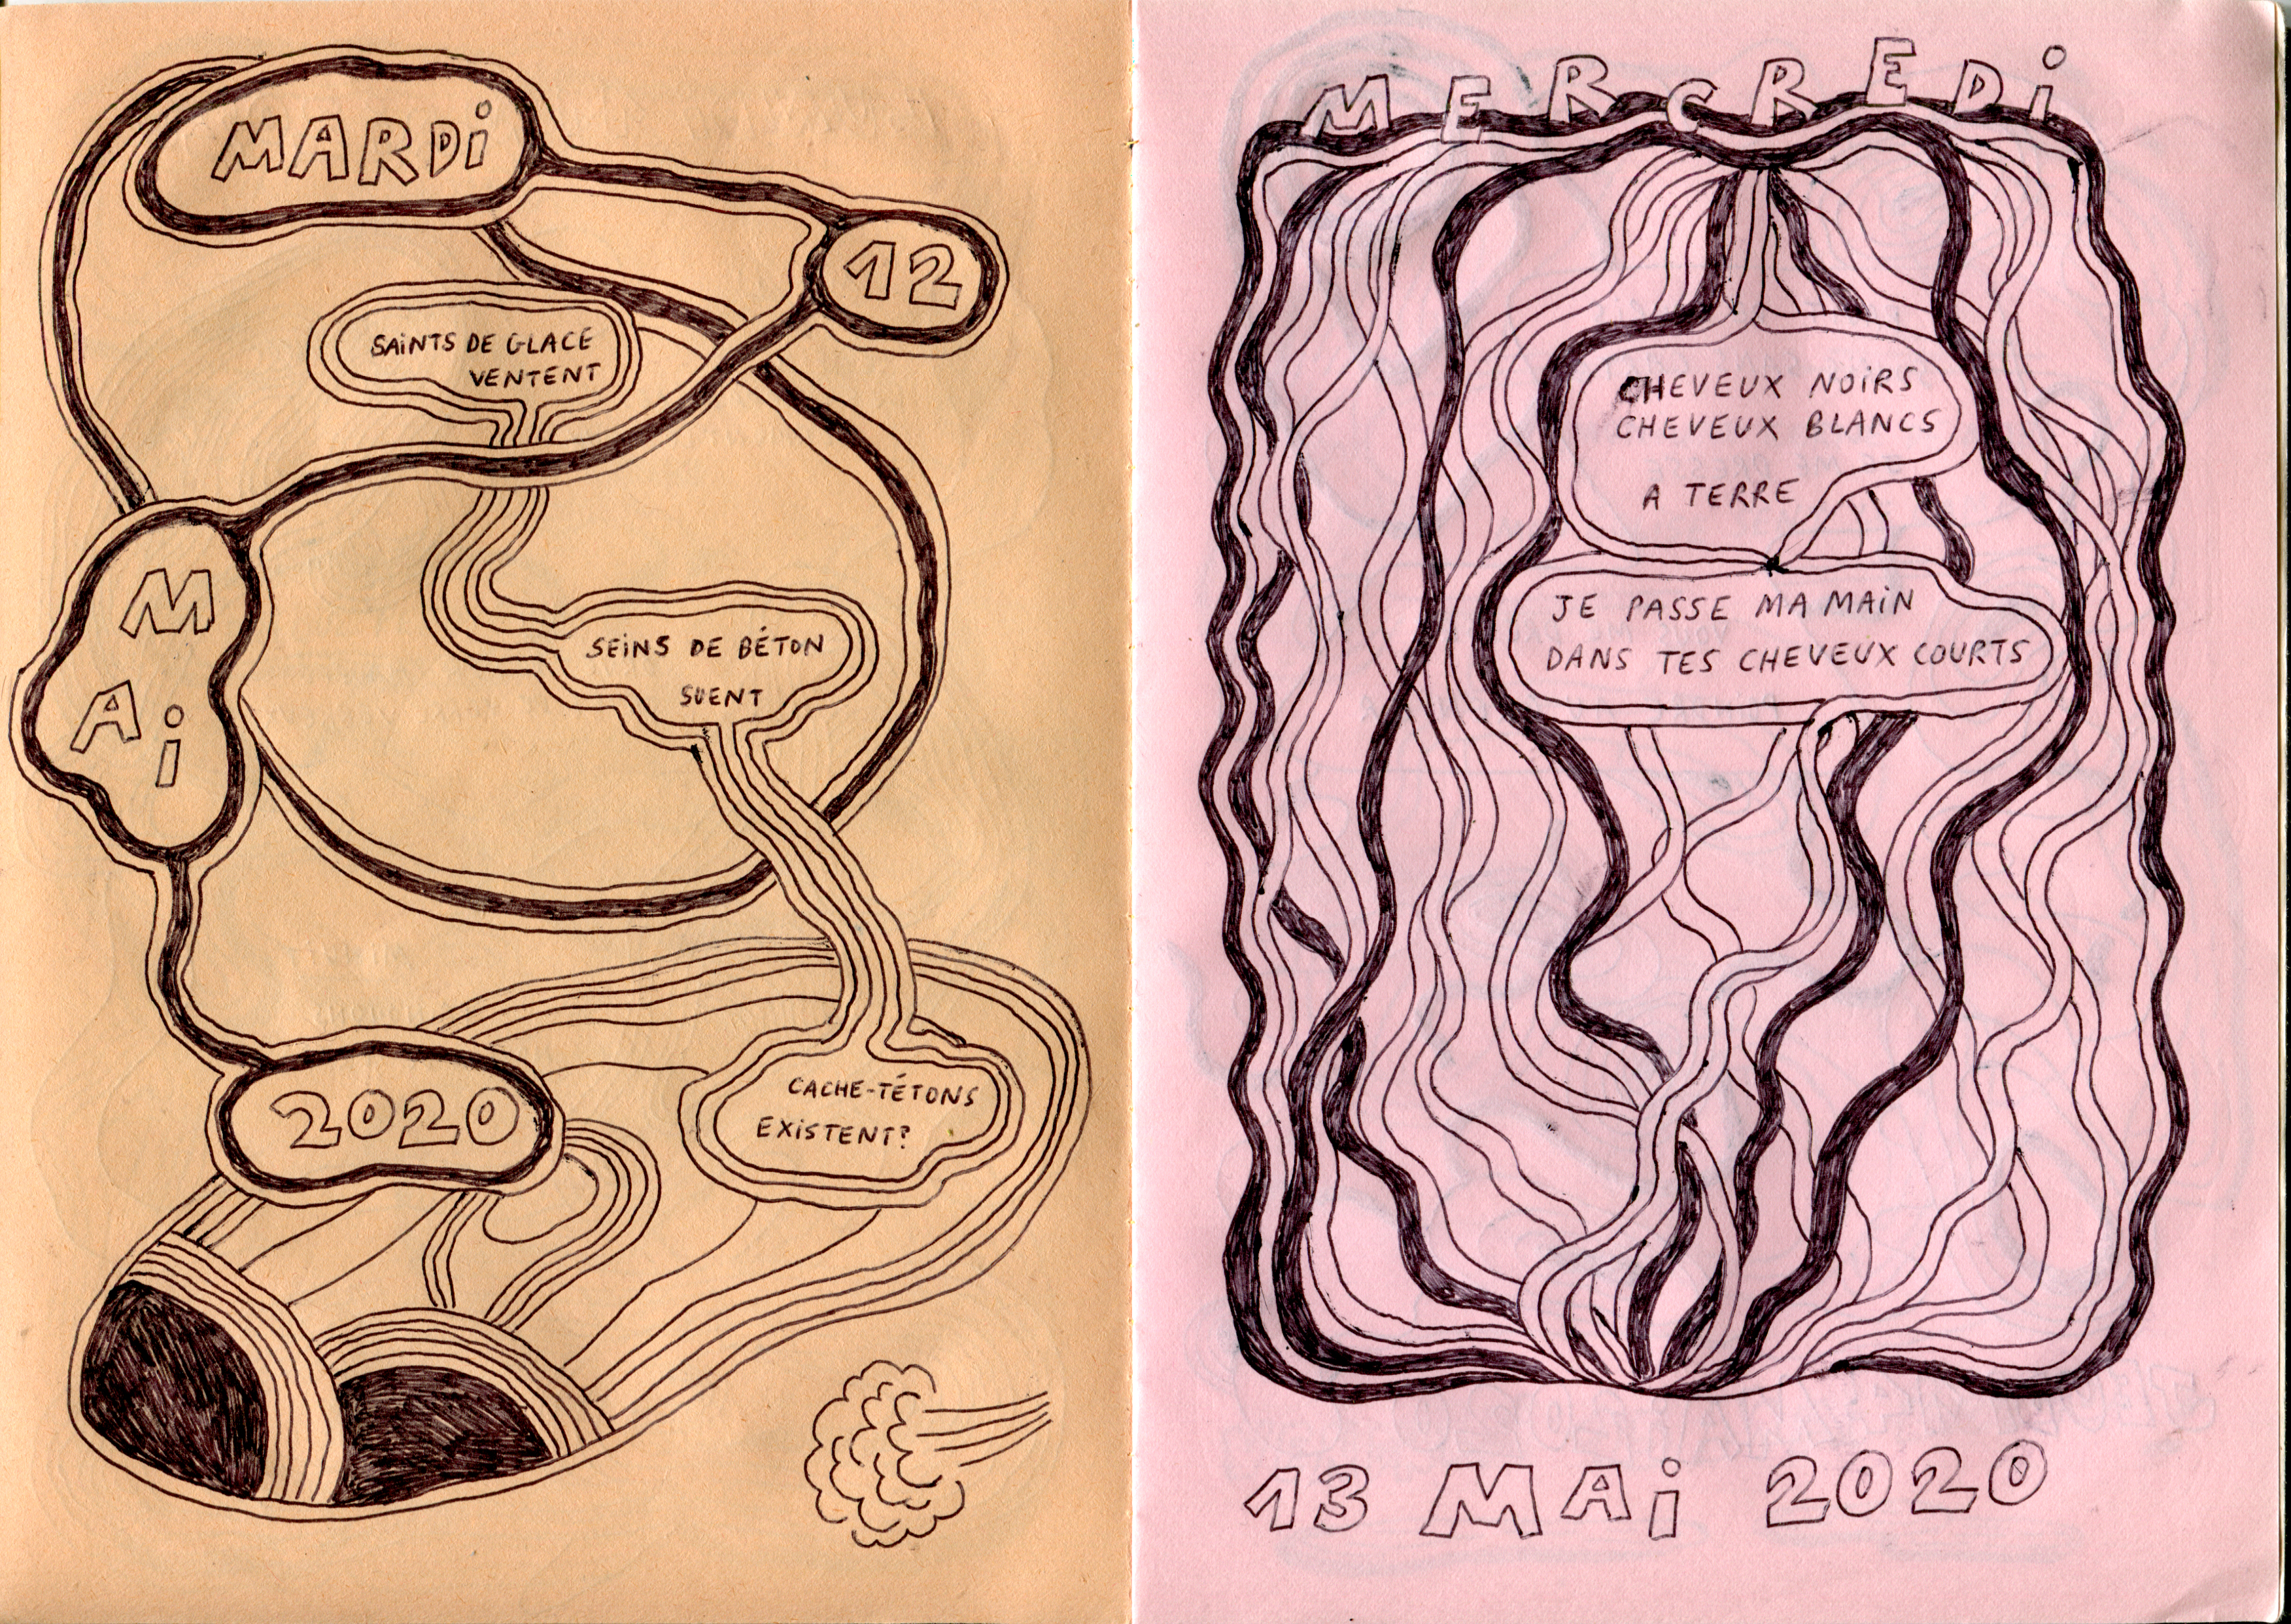 MARDi
12
SAiNTS DE GLACE
VENTENT
MAi
SEiNS DE BÉTON
SUENT
2020
CACHE-TÉTONS
EXiSTENT?
MERCREDi
CHEVEUX NOiRS
CHEVEUX BLANCS
A TERRE
JE PASSE MA MAiN
DANS TES CHEVEUX COURTS
13 MAi 2020